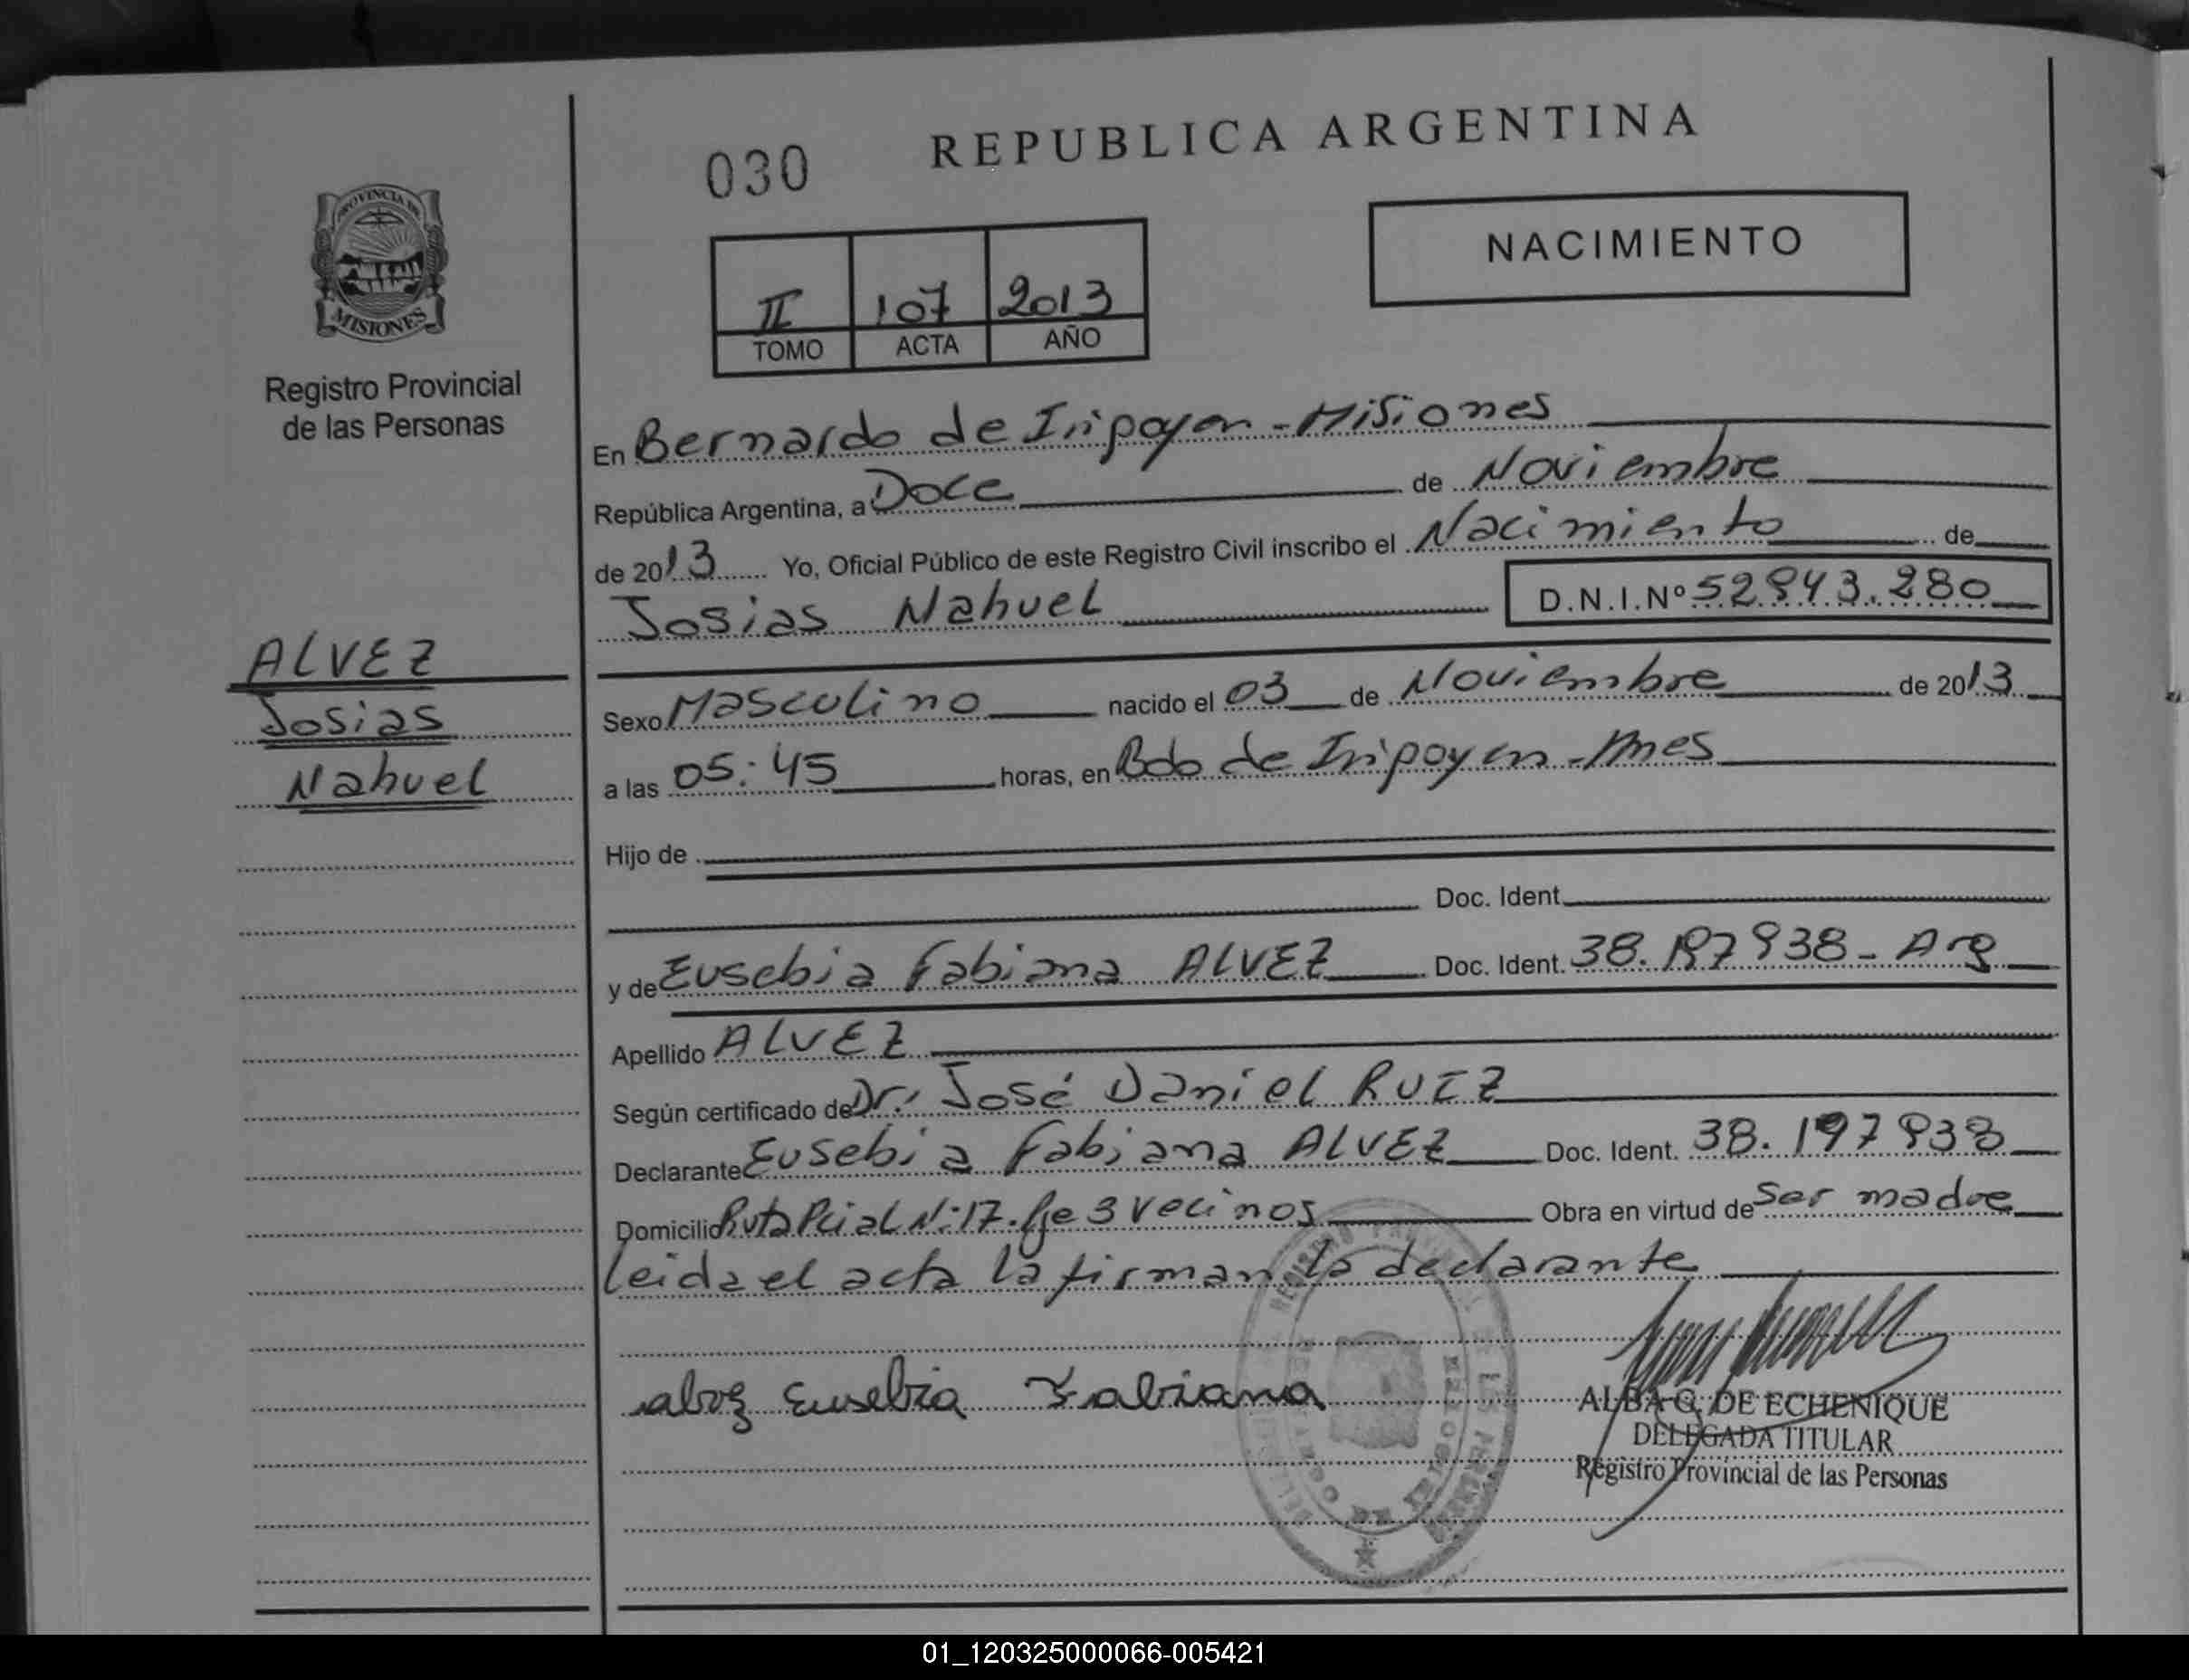 REPUBLICA ARGENTINA
030
NACIMIENTO
II 107 2013
TOMO ACTA AÑO
PROVINCIA DE
MISIONES
Registro Provincial
de las Personas
ALVEZ
Josias
Nahuel
En Bernardo de Irigoyen - Misiones
República Argentina, a Doce de Noviembre
de 2013 Yo, Oficial Público de este Registro Civil inscribo el Nacimiento de
Josias Nahuel D.N.I.Nº 52.943.280
Sexo Masculino nacido el 03 de Noviembre de 2013
a las 05:45 horas, en Bdo de Irigoyen - Mnes
Hijo de
Doc. Ident.
y de Eusebia Fabiana ALVEZ Doc. Ident. 38.197938 - Arg
Apellido ALVEZ
Según certificado de Dr. José Daniel RUIZ
Declarante Eusebia Fabiana ALVEZ Doc. Ident. 38.197938
Domicilio Ruta Pcial Nº 17. Pje 3 vecinos Obra en virtud de Ser madre
Leida el acta la firman la declarante
alvez Eusebia Fabiana
ALBA G. DE ECHENIQUE
DELEGADA TITULAR
Registro Provincial de las Personas
01_120325000066-005421